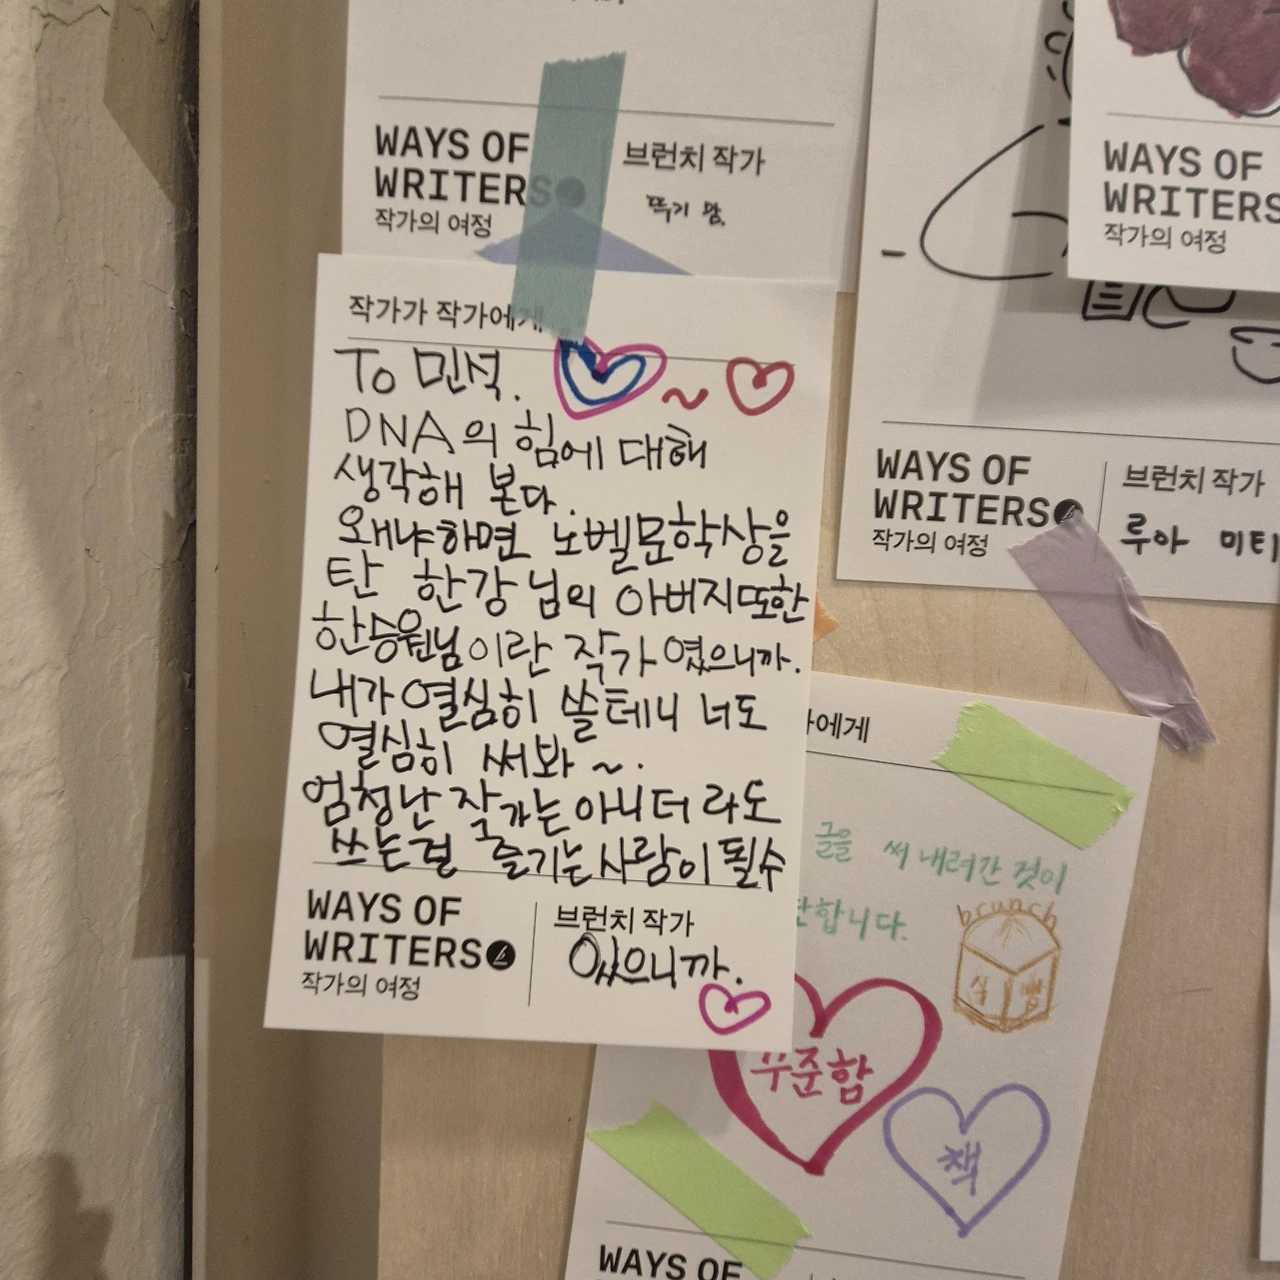 WAYS OF
WRITERS
작가의 여정
브런치 작가
WAYS OF
WRITERS
작가의 여정
작가가 작가에게
To 민석.
DNA의 힘에 대해
생각해 본다.
왜냐하면 노벨문학상을
탄 한강님의 아버지또한
한승원님이란 작가였으니까.
내가 열심히 쓸테니 너도
열심히 써봐~.
엄청난 작가는 아니더라도
쓰는걸 즐기는 사람이 될수
WAYS OF
WRITERS
작가의 여정
브런치 작가
있으니까.
WAYS OF
WRITERS
작가의 여정
브런치 작가
루아 미티
에게
글을 써 내려간 것이
합니다.
brunch
식 빵
꾸준함
책
WAYS OF